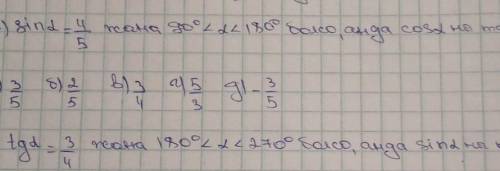 ) sinα = 4/5 жана 90° < α < 180° болсо, анда cosα на
3/5 б) 2/5 в) 3/4 г) 5/3 д) - 3/5
tgα = 3/4 жана 180° < α < 270° болсо, анда sinα на